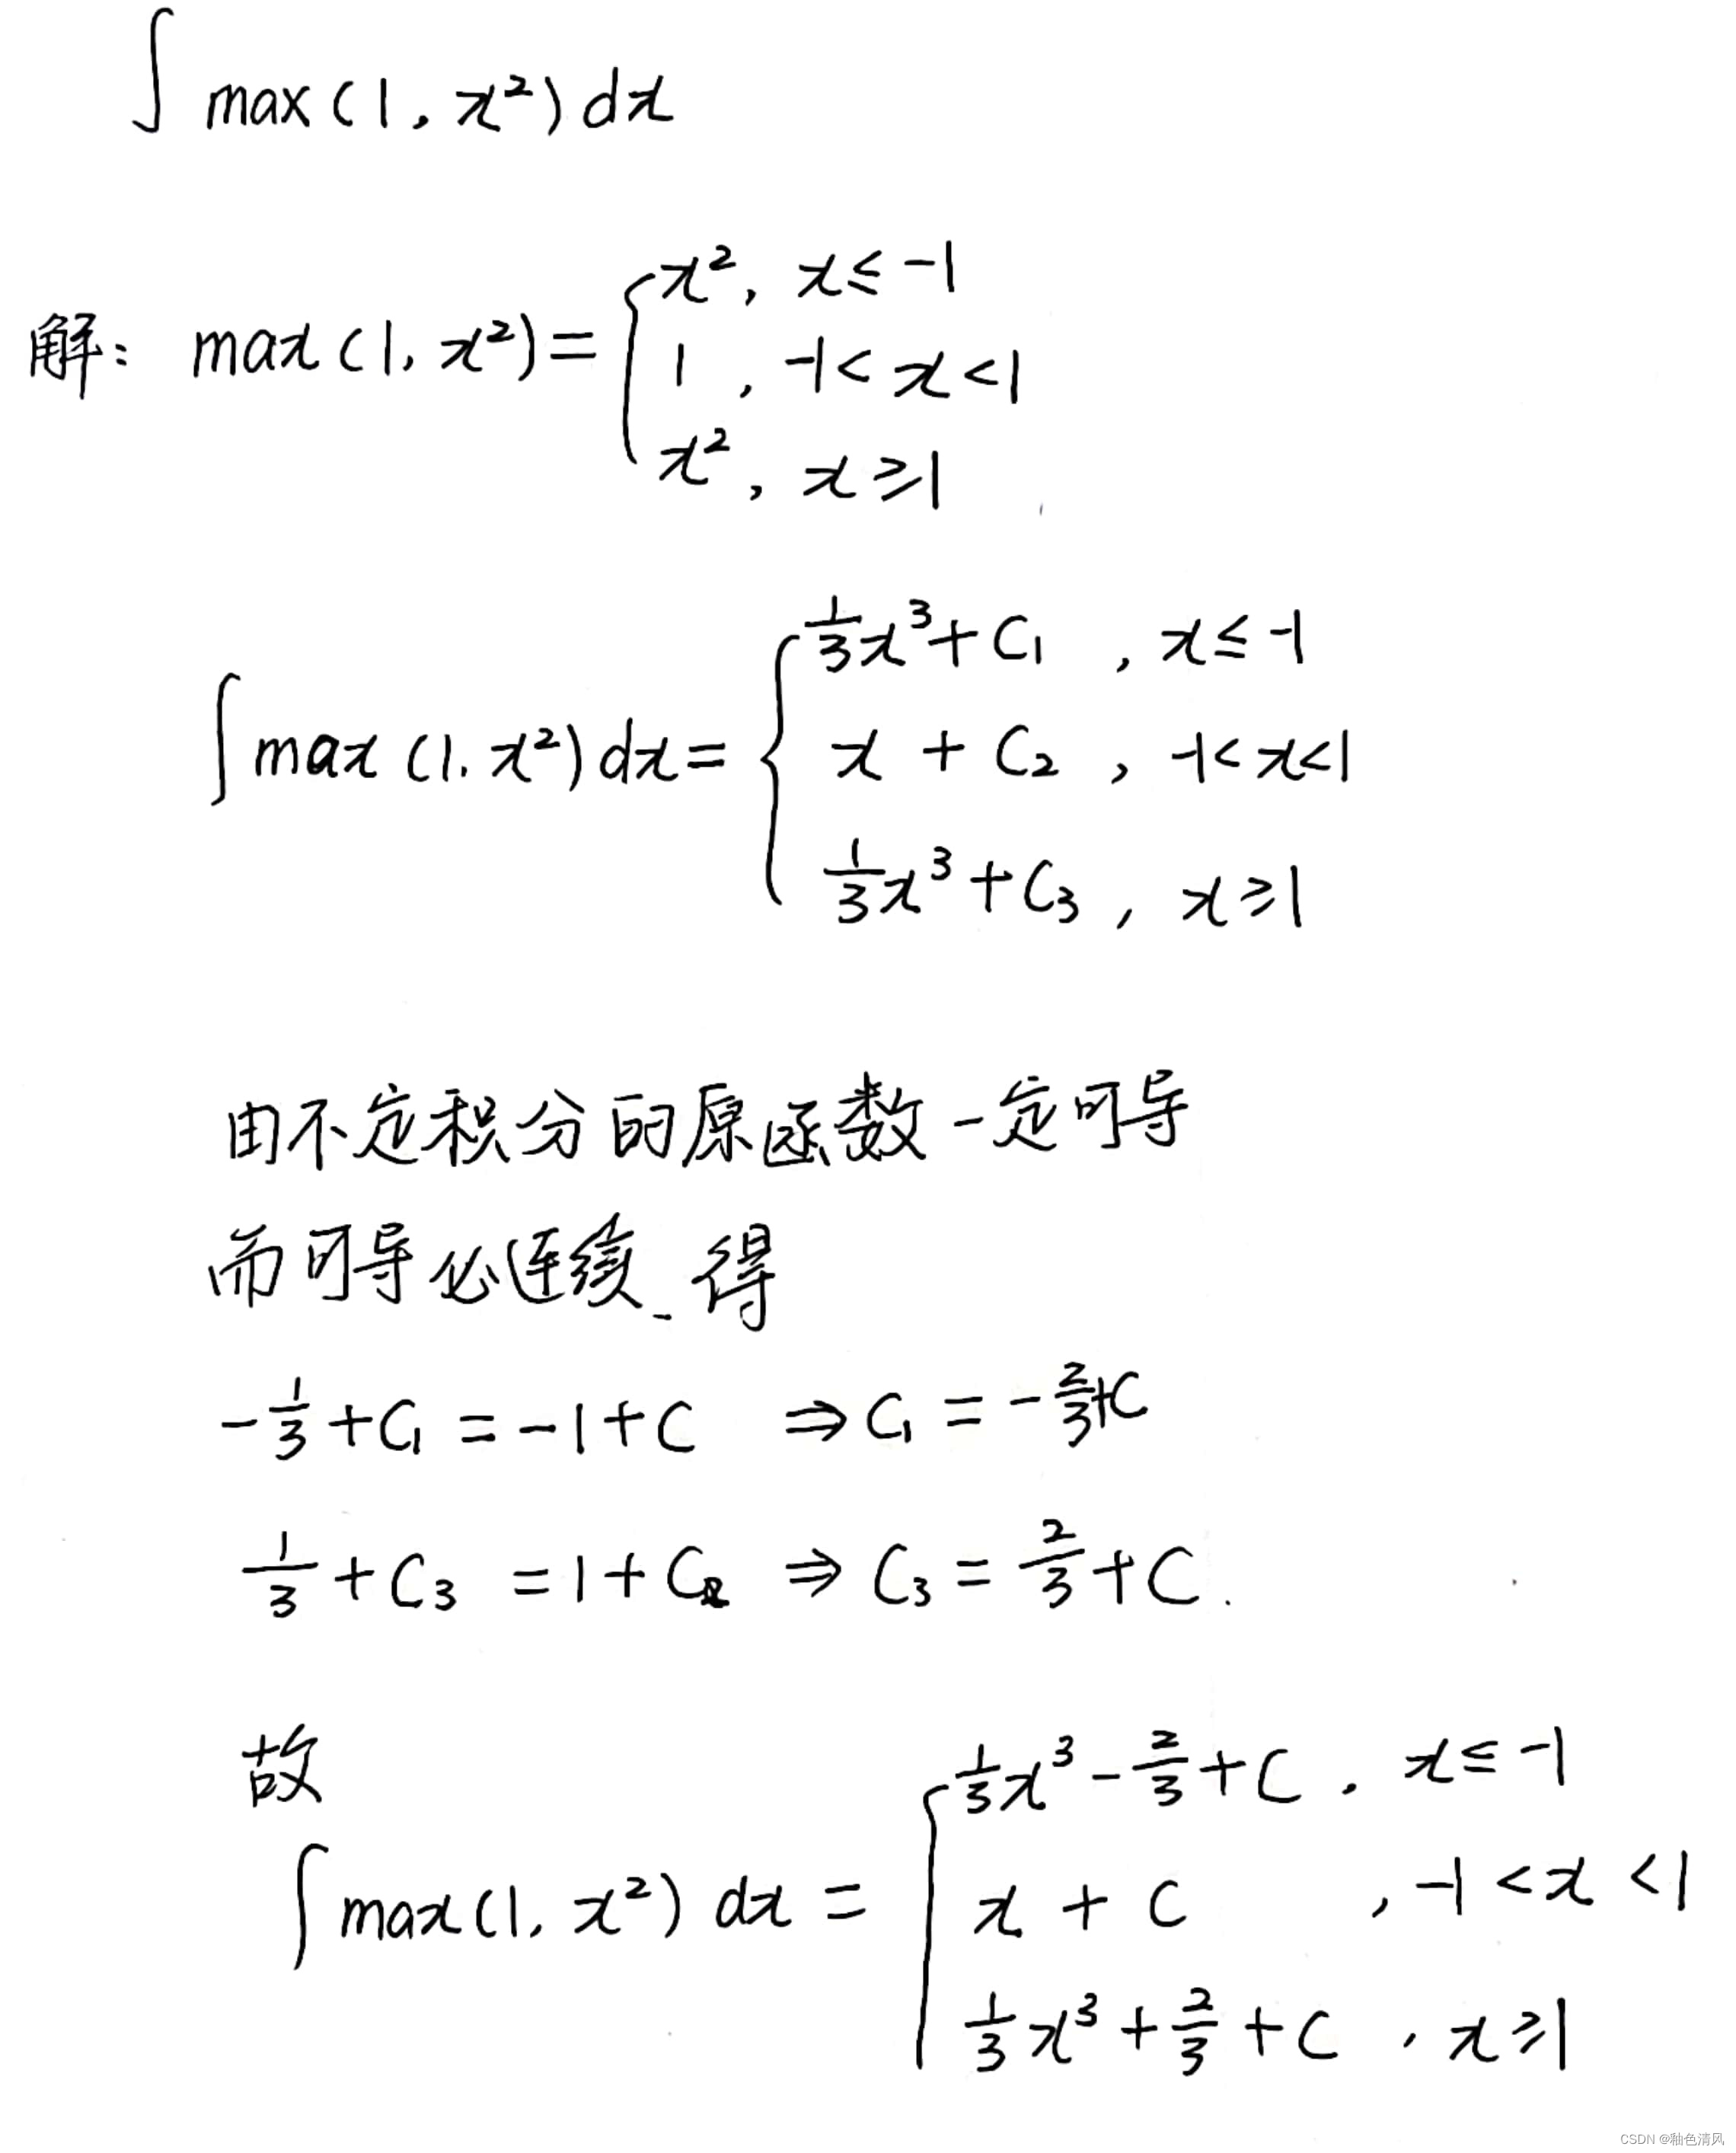 ∫ max(1, x²) dx
解: max(1, x²) = { x², x ≤ -1
1, -1 < x < 1
x², x ≥ 1
∫ max(1, x²) dx = { 1/3 x³ + C₁, x ≤ -1
x + C₂, -1 < x < 1
1/3 x³ + C₃, x ≥ 1
由不定积分的原函数一定可导
而可导必连续 得
-1/3 + C₁ = -1 + C ⇒ C₁ = -2/3 + C
1/3 + C₃ = 1 + C₂ ⇒ C₃ = 2/3 + C.
故
∫ max(1, x²) dx = { 1/3 x³ - 2/3 + C, x ≤ -1
x + C, -1 < x < 1
1/3 x³ + 2/3 + C, x ≥ 1
CSDN @釉色清风